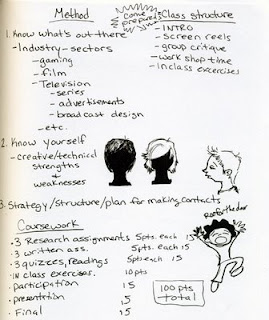 Method
come prepared!
Class structure
1. Know what's out there
- Industry - sectors
- gaming
- film
- Television
- series
- advertisements
- broadcast design
- etc.
- INTRO
- Screen reels
- group critique
- work shop time
- inclass excercises
2. Know yourself
- creative/technical
strengths
+
weaknesses
3. Strategy/structure/plan for making contacts
Coursework
• 3 Research assignments 5pts. each 15
• 3 written ass. 5pts. each 15
• 3 quizzes, readings 5pts each 15
• in class exercises. 10pts
• participation 15
• presentation 15
• Final 15
100 pts
total